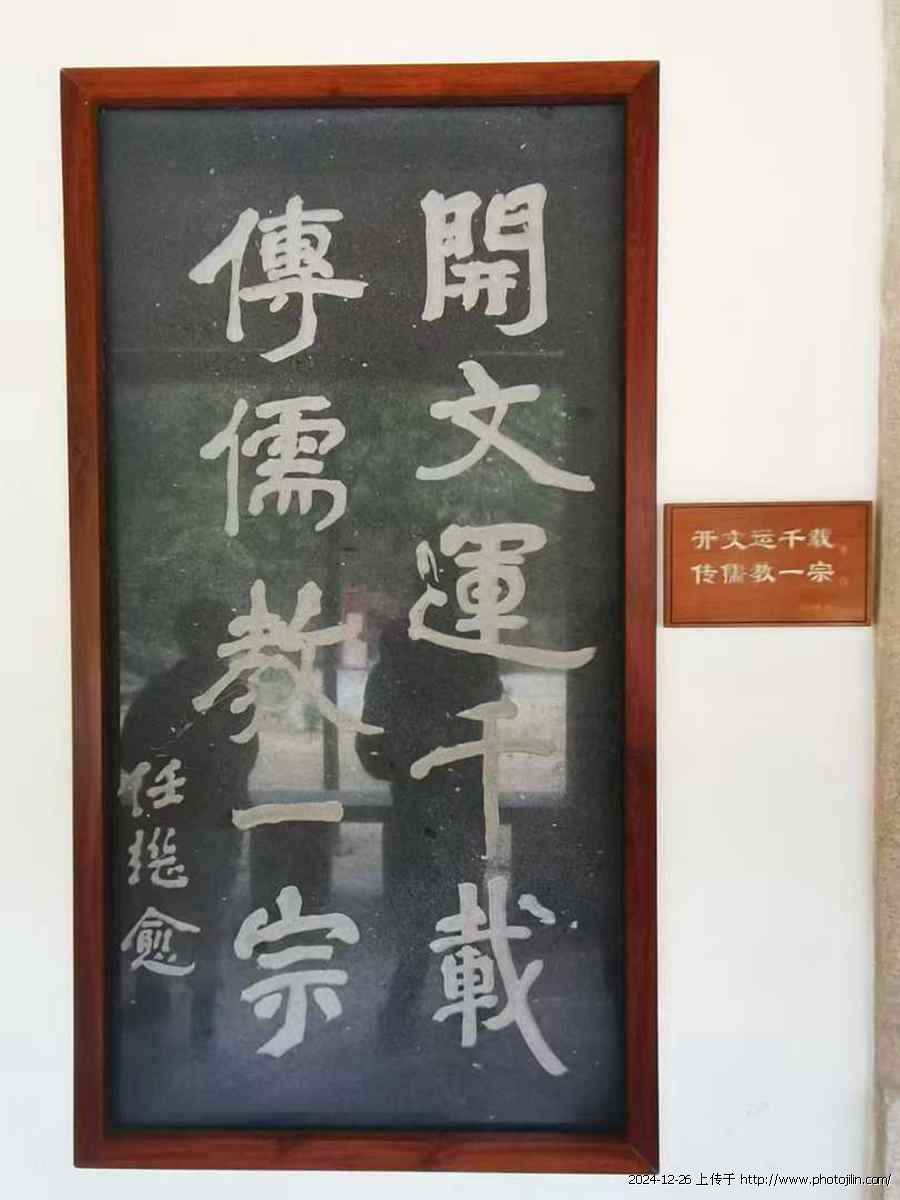 開文運千載
傳儒教一宗
任繼愈
开文运千载
传儒教一宗
2024-12-26 上传于 http://www.photojilin.com/